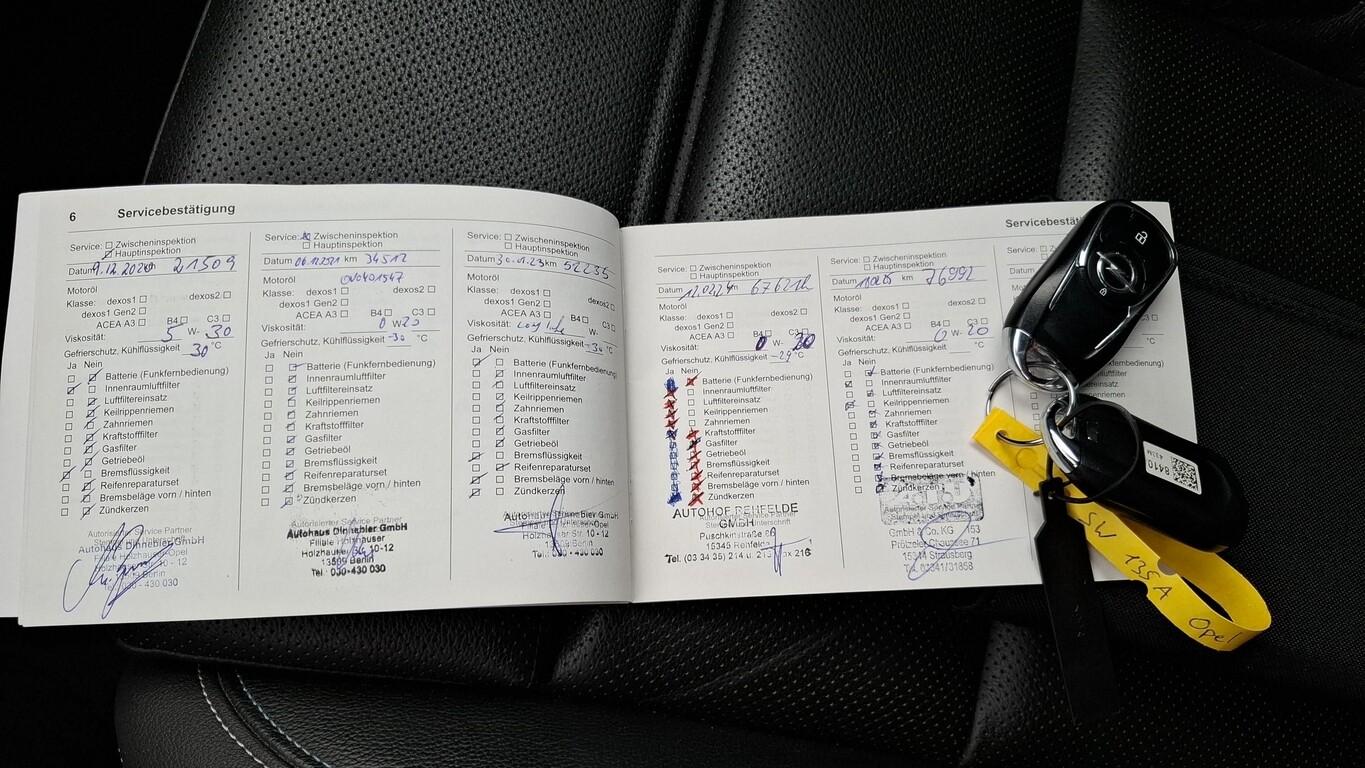 6 Servicebestätigung
Service: Zwischeninspektion
Hauptinspektion
Datum 9.12.2020 km 21509
Motoröl
Klasse: dexos1 dexos2
dexos1 Gen2
ACEA A3 B4 C3
Viskosität: 5 W- 30
Gefrierschutz, Kühlflüssigkeit 30 °C
Ja Nein
Batterie (Funkfernbedienung)
Innenraumluftfilter
Luftfiltereinsatz
Keilrippenriemen
Zahnriemen
Kraftstofffilter
Gasfilter
Getriebeöl
Bremsflüssigkeit
Reifenreparaturset
Bremsbeläge vorn / hinten
Zündkerzen
Autorisierter Service Partner
Autohaus Dinnebier GmbH
Berlin
030-430 030
Service: Zwischeninspektion
Hauptinspektion
Datum 06.12.2021 km 34512
Motoröl
Klasse: dexos1 dexos2
dexos1 Gen2
ACEA A3 B4 C3
Viskosität: 0 W 20
Gefrierschutz, Kühlflüssigkeit -30 °C
Ja Nein
Batterie (Funkfernbedienung)
Innenraumluftfilter
Luftfiltereinsatz
Keilrippenriemen
Zahnriemen
Kraftstofffilter
Gasfilter
Getriebeöl
Bremsflüssigkeit
Reifenreparaturset
Bremsbeläge vorn / hinten
Zündkerzen
Autorisierter Service Partner
Autohaus Dinnebier GmbH
Filiale Holzhauser
Holzhauser 10-12
13509 Berlin
Tel. 030-430 030
Service: Zwischeninspektion
Hauptinspektion
Datum 30.01.23 km 52235
Motoröl
Klasse: dexos1 dexos2
dexos1 Gen2
ACEA A3 B4 C3
Viskosität: W-
Gefrierschutz, Kühlflüssigkeit -30 °C
Ja Nein
Batterie (Funkfernbedienung)
Innenraumluftfilter
Luftfiltereinsatz
Keilrippenriemen
Zahnriemen
Kraftstofffilter
Gasfilter
Getriebeöl
Bremsflüssigkeit
Reifenreparaturset
Bremsbeläge vorn / hinten
Zündkerzen
Autohaus Dinnebier GmbH
Opel
Str. 10-12
Berlin
Tel. 030-430 030
Servicebestä
Service: Zwischeninspektion
Hauptinspektion
Datum km 67621
Motoröl
Klasse: dexos1 dexos2
dexos1 Gen2
ACEA A3 B4 C3
Viskosität: 0 W-
Gefrierschutz, Kühlflüssigkeit -29 °C
Ja Nein
Batterie (Funkfernbedienung)
Innenraumluftfilter
Luftfiltereinsatz
Keilrippenriemen
Zahnriemen
Kraftstofffilter
Gasfilter
Getriebeöl
Bremsflüssigkeit
Reifenreparaturset
Bremsbeläge vorn / hinten
Zündkerzen
AUTOHOF REHFELDE
GMBH
Puschkinstraße
15345 Rehfelde
Tel. (03 34 35) 214 u. 215 Fax 216
Service: Zwischeninspektion
Hauptinspektion
Datum km 76992
Motoröl
Klasse: dexos1 dexos2
dexos1 Gen2
ACEA A3 B4 C3
Viskosität: 0 W- 20
Gefrierschutz, Kühlflüssigkeit °C
Ja Nein
Batterie (Funkfernbedienung)
Innenraumluftfilter
Luftfiltereinsatz
Keilrippenriemen
Zahnriemen
Kraftstofffilter
Gasfilter
Getriebeöl
Bremsflüssigkeit
Reifenreparaturset
Bremsbeläge vorn / hinten
Zündkerzen
Autorisierter Service Partner
GmbH & Co. KG 153
Prötzeler Chaussee 71
15344 Strausberg
Tel. 03341/31858
8410
SW 135A
Opel